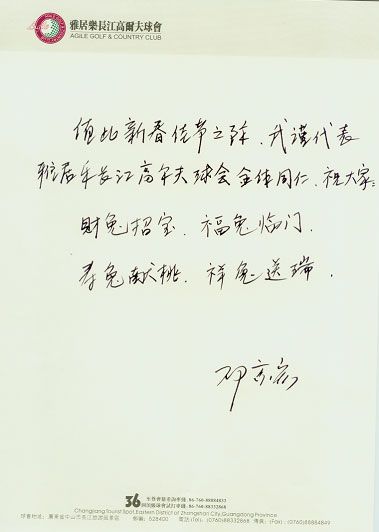 雅居樂長江高爾夫球會
AGILE GOLF & COUNTRY CLUB
值此新春佳节之际、我谨代表
雅居乐长江高尔夫球会全体同仁、祝大家:
财兔招宝、福兔临门、
寿兔献桃、祥兔送瑞.
36
86-760-88884833
86-760-88332868
Changjiang Tourist Spot, Eastern District of Zhongshan City, Guangdong Province
球會地址: 廣東省中山市長江旅游風景區 郵編: 528400 電話(Tel): (0760)88332868 傳真: (Fax): (0760)88884849